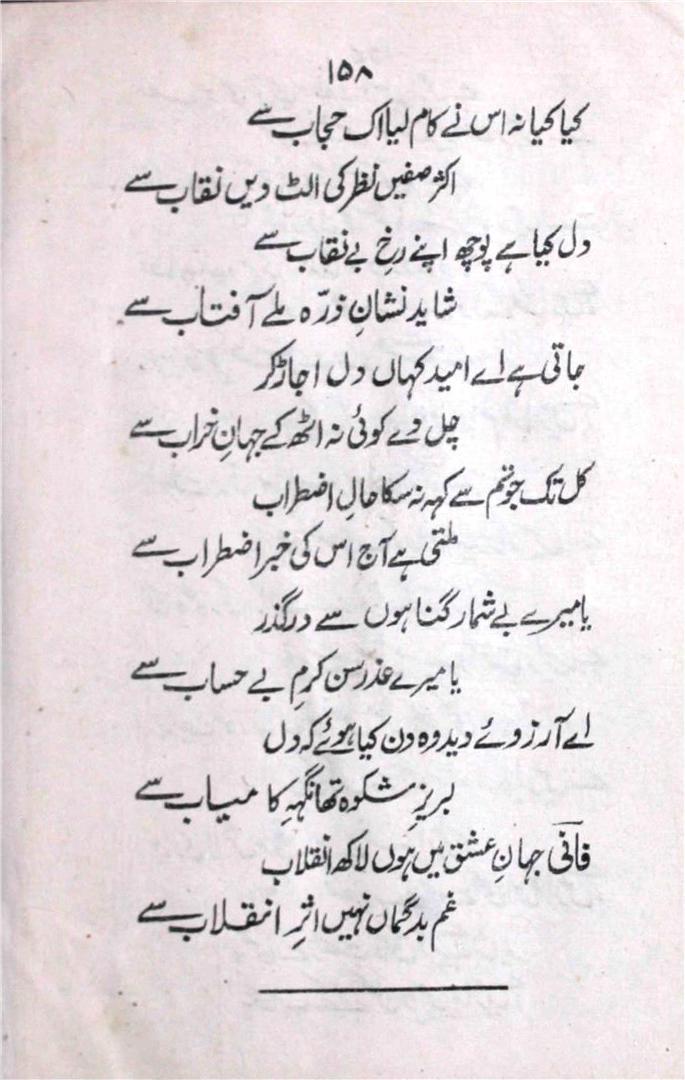 ۱۵۸
کیا کیا نہ اس نے کام لیا اک حجاب سے
اکثر صفیں نظر کی الٹ دیں نقاب سے
دل کیا ہے پوچھ اپنے رخِ بے نقاب سے
شاید نشانِ ذرّہ ملے آفتاب سے
جاتی ہے اے امید کہاں دل اجاڑ کر
چل دے کوئی نہ اٹھ کے جہانِ خراب سے
کل تک جو تم سے کہہ نہ سکا حالِ اضطراب
ملتی ہے آج اس کی خبر اضطراب سے
یا میرے بے شمار گناہوں سے درگذر
یا میرے عذر سن کرمِ بے حساب سے
اے آرزوئے دید وہ دن کیا ہوئے کہ دل
لبریزِ شکوہ تھا نگہِ کامیاب سے
فانؔی جہانِ عشق میں ہوں لاکھ انقلاب
غم بدگماں نہیں اثرِ انقلاب سے